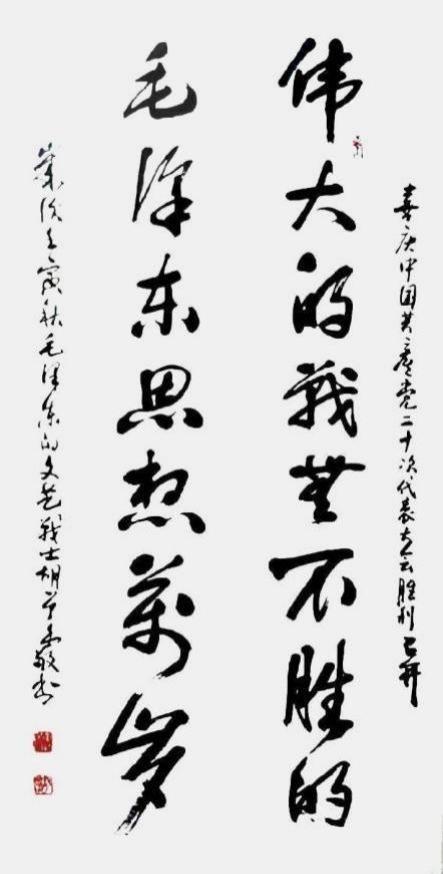 喜庆中国共产党二十次代表大会胜利召开
伟大的戰無不胜的
毛泽东思想萬岁
歲次壬寅秋毛泽东的文艺戰士胡敬书